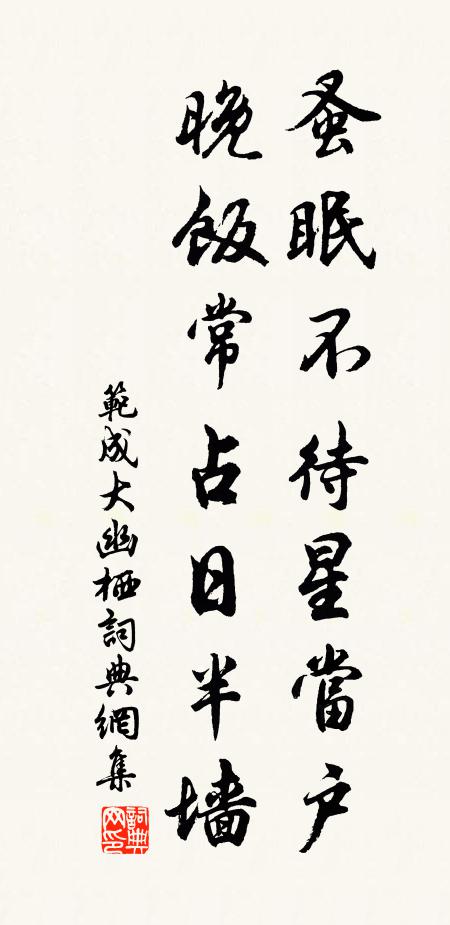 蚤眠不待星當户
晚飯常占日半墙
範成大幽栖詞典網集
詞典网印